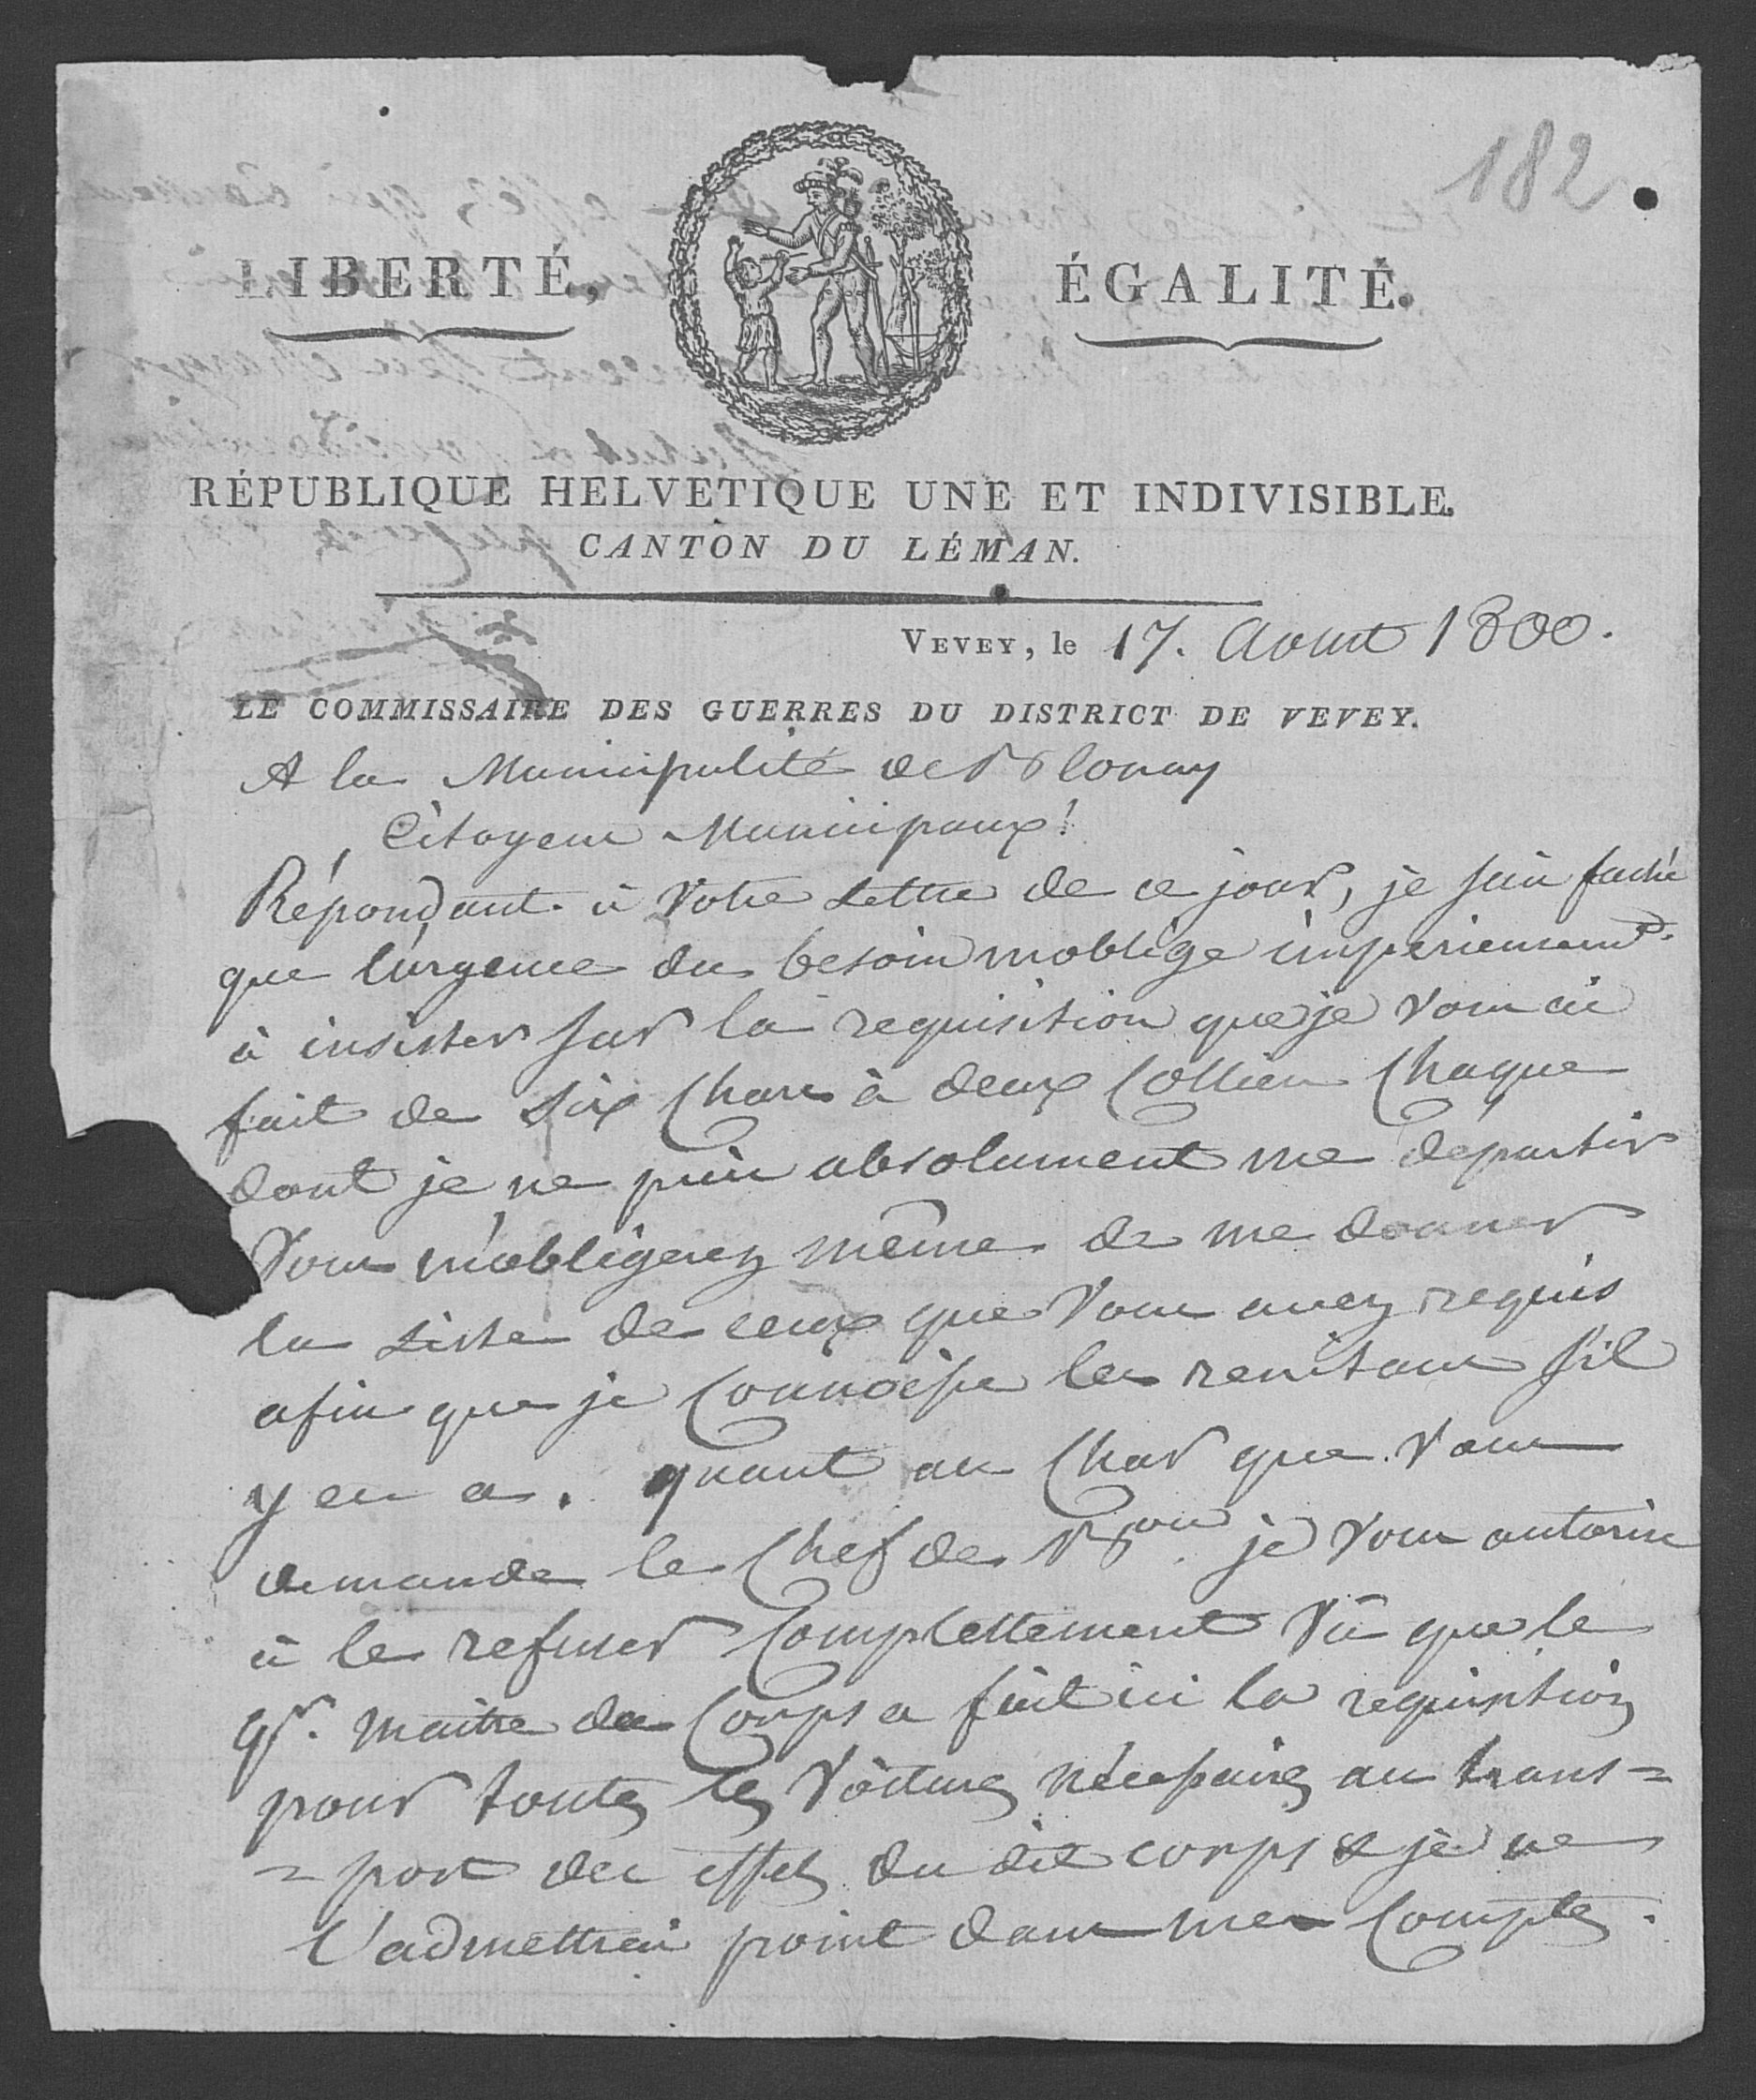 182
LIBERTÉ, ÉGALITÉ.
RÉPUBLIQUE HELVETIQUE UNE ET INDIVISIBLE.
CANTON DU LÉMAN.
VEVEY, le 17. Aoust 1800.
LE COMMISSAIRE DES GUERRES DU DISTRICT DE VEVEY.
A la Municipalité de Blonay
Citoyens Municipaux!
Répondant à Votre Lettre de ce jour, je suis faché
que l'urgence du besoin moblige imperieusemt.
à insister sur la requisition que je Vous ai
fait de Six Chars à deux Colliers Chaque
dont je ne puis absolument me départir
Vous m'obligerez même de me donner
la Liste de ceux que Vous avez requis
afin que je Connoisse les renitans s'il
y en a. quant au Char que Vous
demande le Chef de Bon je Vous autorise
à le refuser Complettement Vû que le
qr. maitre du Corps a fait ici la requisition
pour toutes les Voitures nécessaires au trans=
=port des effets du dit corps & je ne
l'admettrai point dans mes Comptes.